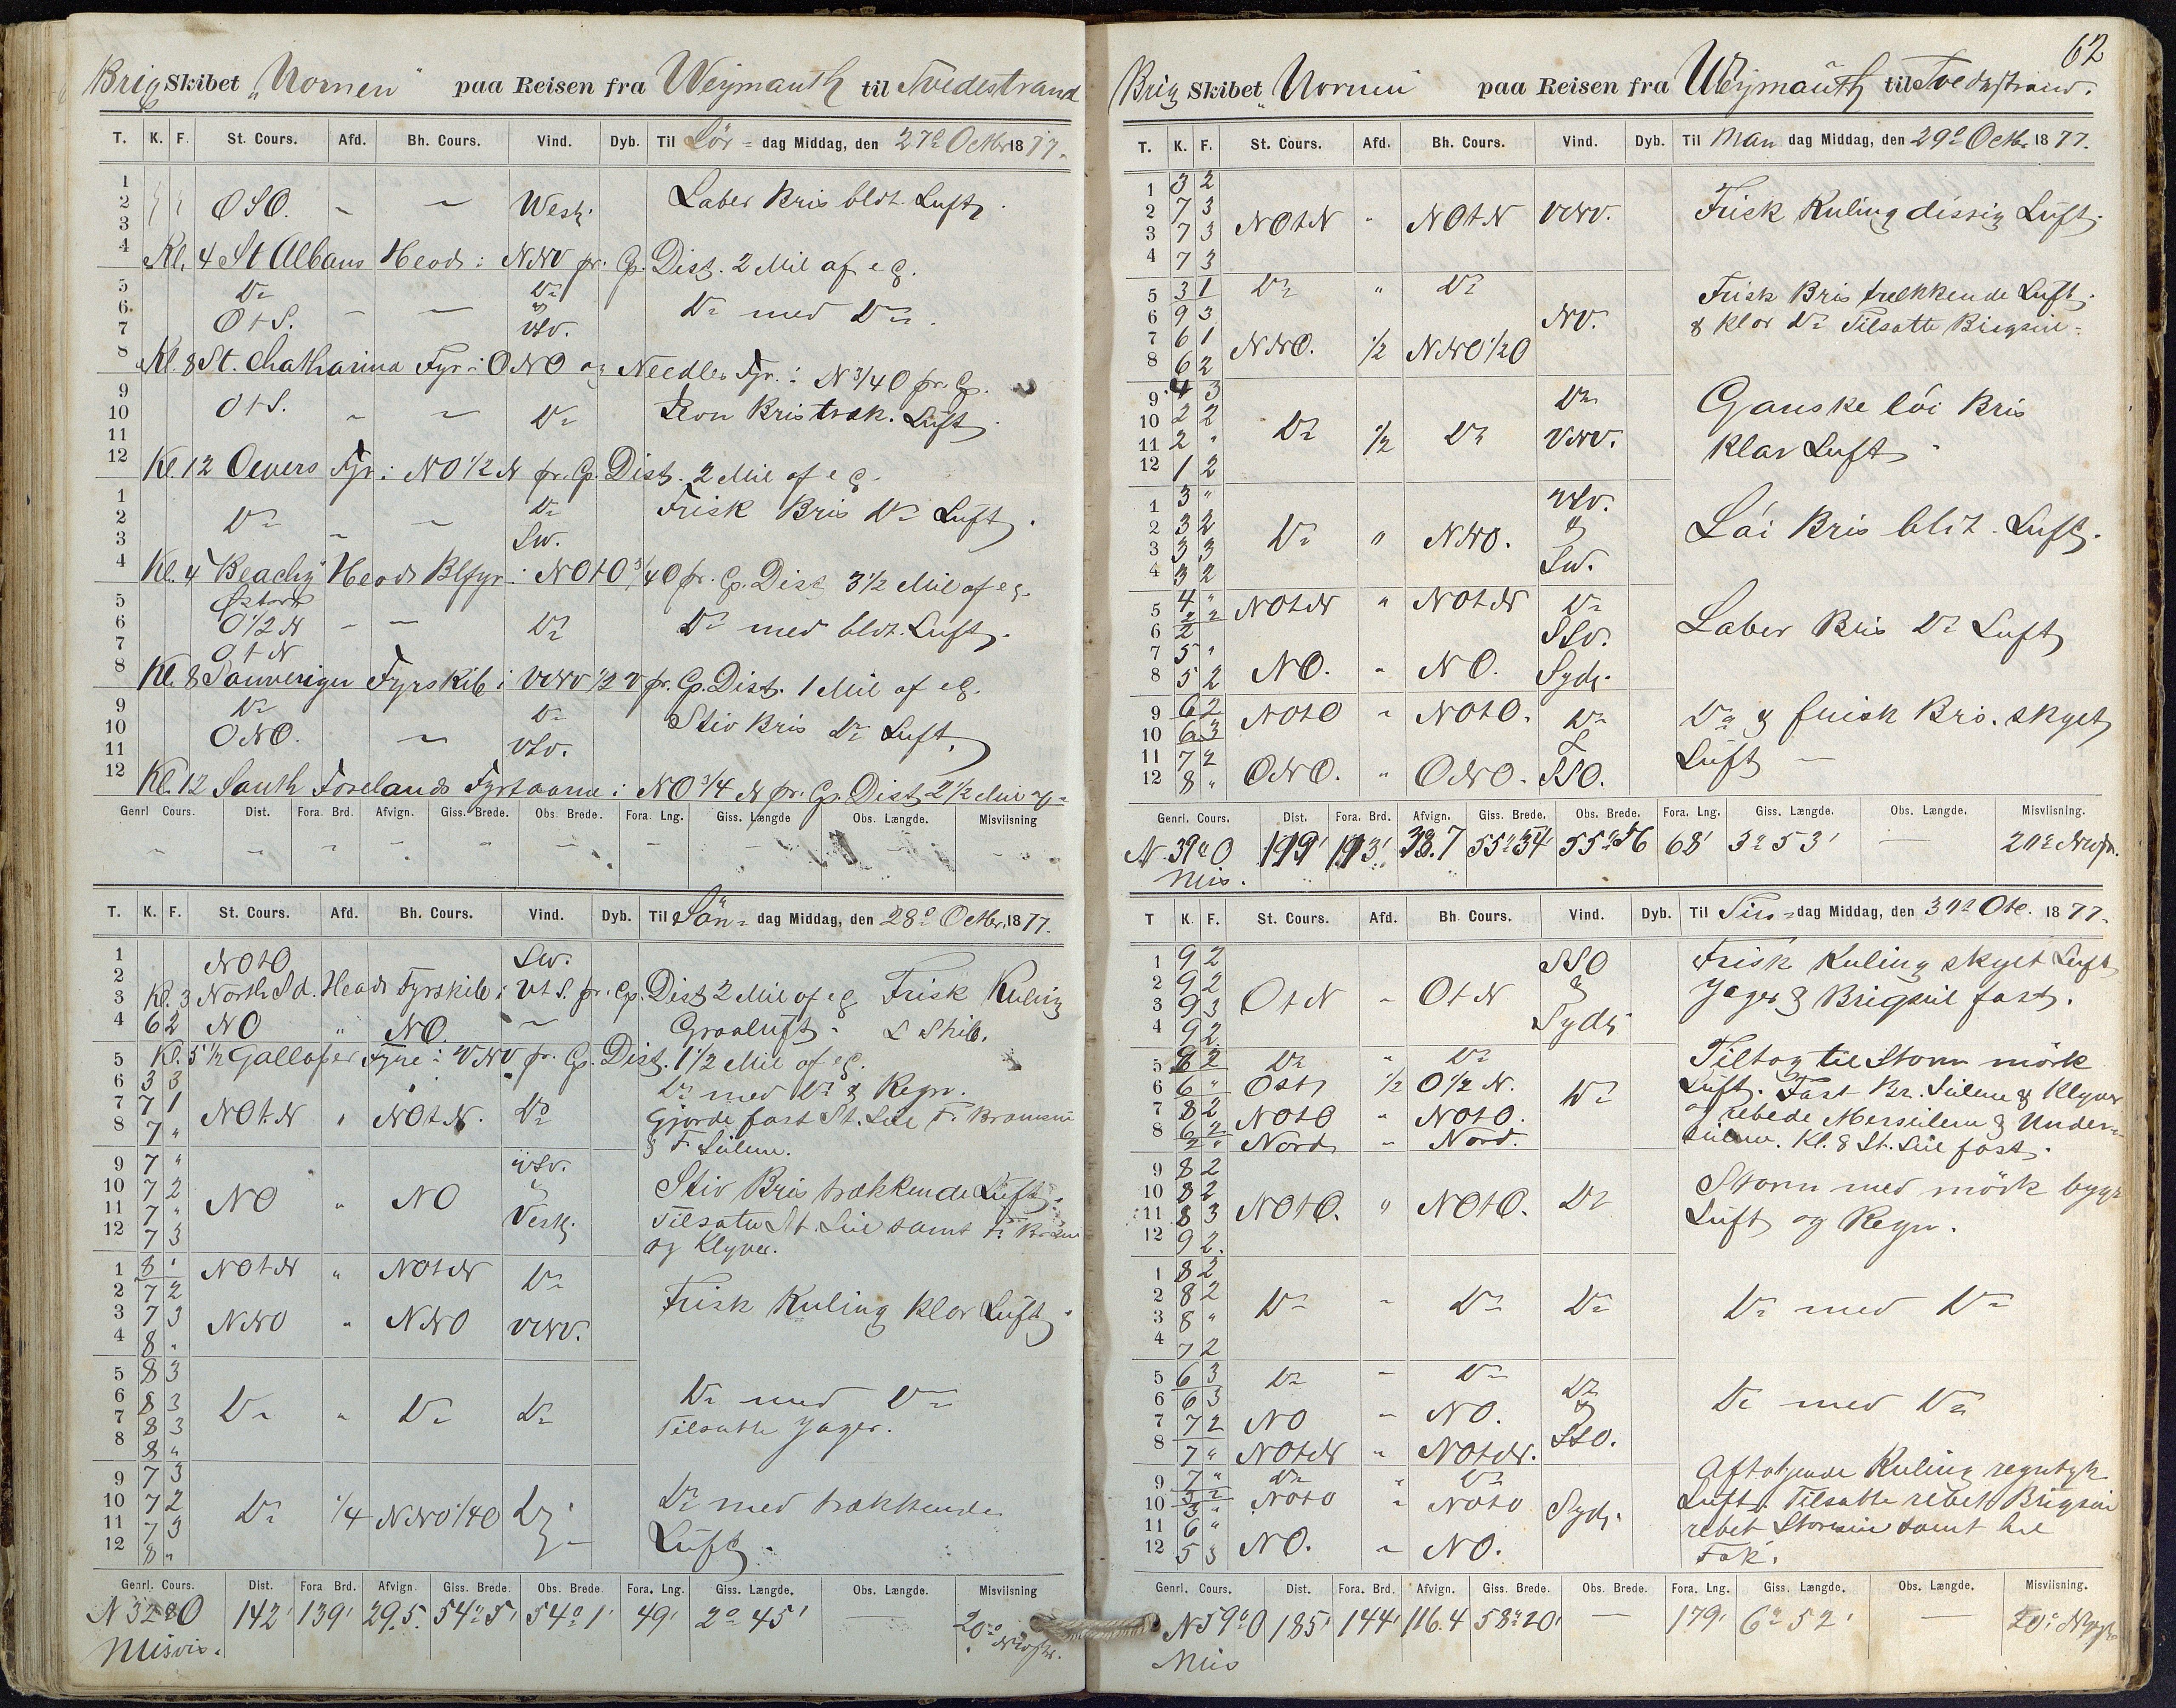 Brig Skibet "Nornen" paa Reisen fra Weymauth til Tvedestrand
T. K. F. St. Cours. Afd. Bh. Cours. Vind. Dyb. Til Lör = dag Middag, den 27de Octbr 1877.
1
2 OSO. " " West. Laber Bris bldt. Luft.
3
4 Kl. 4 St Albans Head : NNV pr. Cp. Dist. 2 Mil af eg.
5 Do Do
6 OtS. " " & Do med Do.
7 VSV.
8 Kl. 8 St. Chatharina Fyr : ONO og Needles Fyr : N 3/4 O pr. Cp.
9
10 OtS. " " Do Bris træk. Luft.
11
12 Kl. 12 Oevers Fyr : NO 1/2 N pr. Cp. Dist. 2 Mil af eg.
1 Do Frisk Bris Do Luft.
2 Do " "
3 SW.
4 Kl. 4 Beachy Head Blfyr : NOtO 3/4 O pr. Cp. Dist 3 1/2 Mil af eg.
5
6 O 1/2 N " " Do Do med bldt. Luft.
7 OtN
8 Kl. 8 Sauverigen Fyrskib : VNV 1/2 V pr. Cp. Dist. 1 Mil af eg.
9 Do Do Stiv Bris Do Luft.
10 ONO. "
11 VSV.
12 Kl. 12 Sauth Forelands Fyrtaarne : NO 3/4 N pr. Cp. Dist 2 1/2 Mil
Genrl Cours. Dist. Fora. Brd. Afvign. Giss. Brede. Obs. Brede. Fora. Lng. Giss. Længde Obs. Længde. Misviisning
T. K. F. St. Cours. Afd. Bh. Cours. Vind. Dyb. Til Sön = dag Middag, den 28de Octbr. 1877.
1 NOtO SW.
2
3 Kl. 3 North Sd. Head Fyrskib : VtS. pr. Cp. Dist 2 Mil af eg Frisk Kuling
4 6 2 NO " NO. " Graaluft. L Skib.
5 Kl. 5 1/2 Galloper Fyre : VNV pr. Cp. Dist. 1 1/2 Mil af eg.
6 3 3 Do med Do & Regn.
7 7 1 NOtN " NOtN. Do Gjorde fast St. Seil F. Bramseil
8 7 " & F. Seilene.
9 7 " VSV.
10 7 2 NO " NO & Stiv Bris trækkende Luft.
11 7 " Vest. Tilsatte St. Seil samt F.
12 7 3 og Klyver.
1 8 " NOtN " NOtN Do
2 7 2 Frisk Kuling klar Luft.
3 7 3 NNO " NNO VNV.
4 8 "
5 8 3
6 8 3 Do " Do Do Do med Do
7 8 3 Tilsatte Jager.
8 8 "
9 7 3
10 7 2 Do 1/4 NNO 1/4 O Do Do med trækkende
11 7 3 Luft.
12 8 "
Genrl. Cours. Dist. Fora Brd. Afvign. Giss. Brede. Obs. Brede. Fora. Lng. Giss. Længde. Obs. Længde. Misviisning
N 32° O 142' 139' 29.5. 54° 5' 54° 1' 49' 2° 45' 20°
Misvis.
62
Brig Skibet "Nornen" paa Reisen fra Weymauth til Tvedestrand.
T. K. F. St. Cours. Afd. Bh. Cours. Vind. Dyb. Til Man dag Middag, den 29de Octbr. 1877.
1 3 2
2 7 3 NOtN " NOtN VNV. Frisk Kuling dissig Luft.
3 7 3
4 7 3
5 3 1 Do " Do Frisk Bris trækkende Luft.
6 9 3 NV. & klar Do Tilsatte Brigseil
7 6 1 NNO. 1/2 NNO 1/2 O
8 6 2
9 4 3 Do Ganske löi Bris
10 2 2 Do 1/2 Do VNV. klar Luft
11 2 "
12 1 2
1 3 " VSV.
2 3 2 Do " NNO. & Löi Bris bldt. Luft.
3 3 3 SW.
4 3 2
5 4 " NOtN " NOtN Do
6 2 SSV. Laber Bris Do Luft
7 5 " NO. " NO. Syd.
8 5 2
9 6 2 NOtO " NOtO. Do Do & frisk Bris. skyet
10 6 3
11 7 2 ONO. " ONO. SSO. Luft
12 8 "
Genrl. Cours. Dist. Fora. Brd. Afvign. Giss. Brede. Obs. Brede. Fora. Lng. Giss. Længde. Obs. Længde. Misviisning.
N. 39° O 38.7 55° 34' 68' 3° 53' 20°
Mis.
T K. F. St. Cours. Afd. Bh. Cours. Vind. Dyb. Til Tirs = dag Middag, den 30de 1877.
1 9 2 SSO Frisk Kuling skyet Luft
2 9 2 OtN " OtN & Jager & Brigseil fast.
3 9 3 Syd.
4 9 2
5 8 2 Do " Do Tiltog til Storm mörk
6 6 " Ost 1/2 O 1/2 N. Do Luft. Fast Br. Seilene & Klyver
7 8 2 NOtO " NOtO. og rebede Merseilene & Under-
8 6 2 Nord " Nord. seilene. Kl. 8 St. Seil fast.
9 8 2
10 8 2 NOtO. " NOtO. Do Storm med mörk
11 8 3 Luft og Regn.
12 9 2
1 8 2
2 8 2 Do " Do Do Do med Do
3 8 "
4 7 2
5 6 3 Do " Do Do
6 6 3 & Do med Do
7 7 2 NO " NO. SSO.
8 7 " NOtN " NOtN.
9 7 " Do " Do Aftagende Kuling regntyk
10 3 " NOtO " NOtO Syd. Luft. Tilsatte rebet Brigseil
11 6 " rebet Storseil samt hel
12 5 3 NO. " NO. Fok.
Genrl. Cours. Dist. Fora. Brd. Afvign. Giss. Brede. Obs. Brede. Fora. Lng. Giss. Længde. Obs. Længde. Misviisning.
N 59° O 185' 144' 116.4 58° 20' 179' 6° 52' 20°
Mis